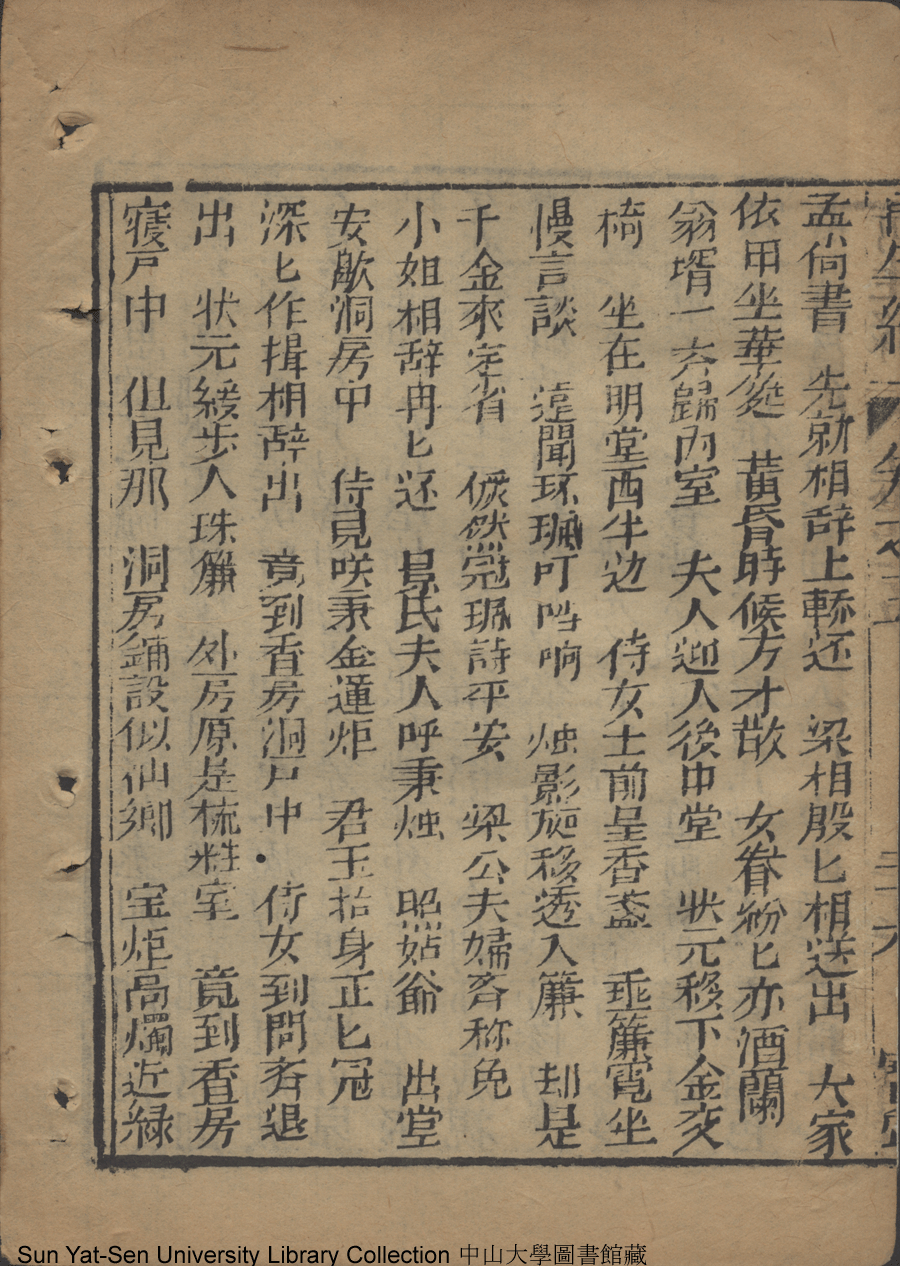 孟尚書　先就相辞上轎还　梁相殷匕相送出　大家
依甲坐華筵　黃昏時候方才散　女眷紛匕亦酒蘭
翁壻一齐歸內室　夫人迎入後中堂　状元移下金交
椅　坐在明堂西半边　侍女士前呈香盃　垂簾電坐
慢言談　遠聞环珮叮噹响　烛影施移透入簾　却是
千金來定省　偀然冠珮詩平安　梁公夫婦斉称免
小姐相辞冉匕还　景氏夫人呼秉烛　照姑爺　出堂
安歇洞房中　侍見咲秉金蓮炬　君玉抬身正匕冠
深匕作揖相辞出　竟到香房洞户中　侍女到問斉退
出　状元緩步人珠簾　外房原是梳粧室　竟到香房
寝戸中　但見那　洞房鋪設似仙鄉　宝炬高燭近緑
Sun Yat-Sen University Library Collection 中山大學圖書館藏